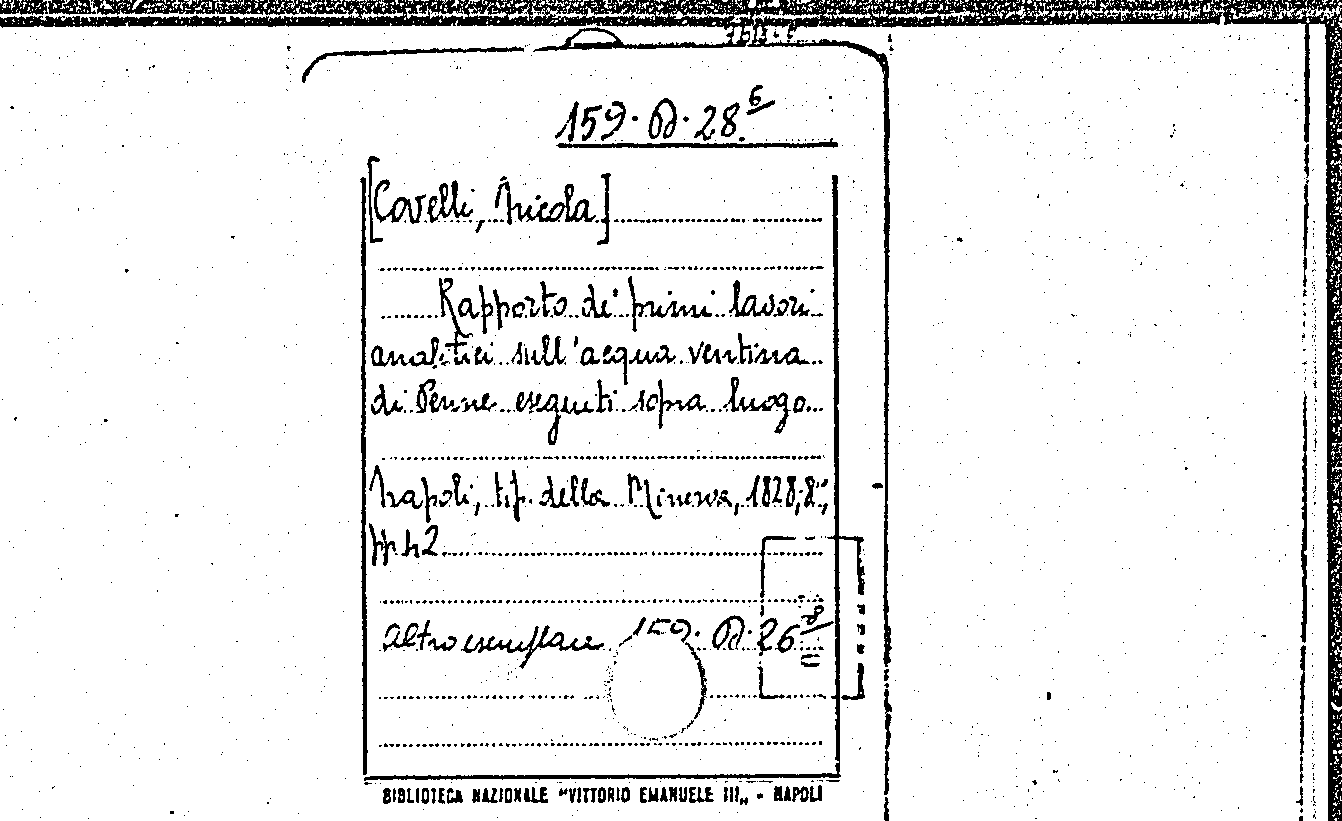 159. D. 28.6
[Covelli, Nicola]
Rapporto de' primi lavori
analitici sull'acqua ventina
di Penne eseguiti sopra luogo
Napoli, tip. della Minerva, 1828, 8°,
pp. 42
Altro esemplare 159. D. 26
BIBLIOTECA NAZIONALE "VITTORIO EMANUELE III„ - NAPOLI